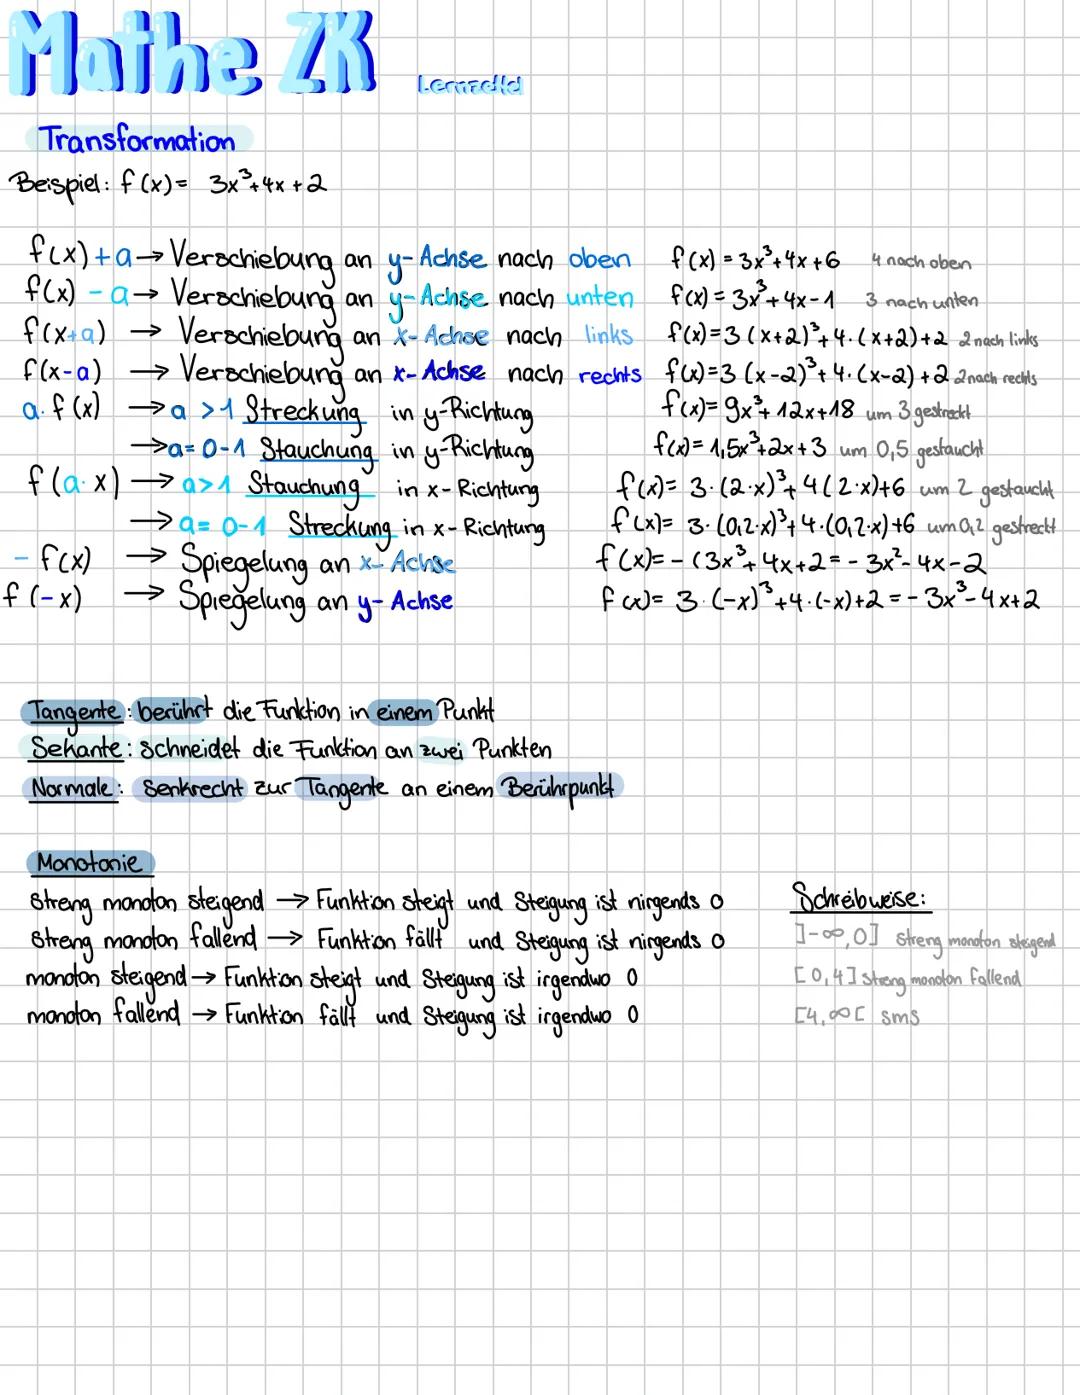 Mathe ZK
Lernzettel
Transformation
Beispiel: f(x) = 3x³+4x+2
f(x)+a → Verschiebung an y-Achse nach oben f(x) = 3x³+4x+6 4 nach oben
f(x) - a → Verschiebung an y-Achse nach unten f(x) = 3x³+4x-1 3 nach unten
f(x+a) → Verschiebung an x-Achse nach links f(x)=3(x+2)³+4·(x+2)+2 2 nach links
f(x-a) → Verschiebung an x-Achse nach rechts f(x)=3(x-2)³+4·(x-2)+2 2 nach rechts
a·f(x) → a >1 Streckung in y-Richtung f(x)= 9x³+12x+18 um 3 gestreckt
→ a= 0-1 Stauchung in y-Richtung f(x)= 1,5x³+2x+3 um 0,5 gestaucht
f(a·x) → a>1 Stauchung in x-Richtung f(x)= 3·(2·x)³+4(2·x)+6 um 2 gestaucht
→ a= 0-1 Streckung in x-Richtung f(x)= 3·(0,2·x)³+4·(0,2·x)+6 um 0,2 gestreckt
- f(x) → Spiegelung an x-Achse f(x)= -(3x³+4x+2 = -3x²-4x-2
f(-x) → Spiegelung an y-Achse f(x)= 3·(-x)³+4·(-x)+2 = -3x³-4x+2
Tangente: berührt die Funktion in einem Punkt
Sekante: schneidet die Funktion an zwei Punkten
Normale: Senkrecht zur Tangente an einem Berührpunkt
Monotonie
Streng monoton steigend → Funktion steigt und Steigung ist nirgends 0
Streng monoton fallend → Funktion fällt und Steigung ist nirgends 0
monoton steigend → Funktion steigt und Steigung ist irgendwo 0
monoton fallend → Funktion fällt und Steigung ist irgendwo 0
Schreibweise:
]-∞,0] streng monoton steigend
[0,4] streng monoton fallend
[4,∞[ sms